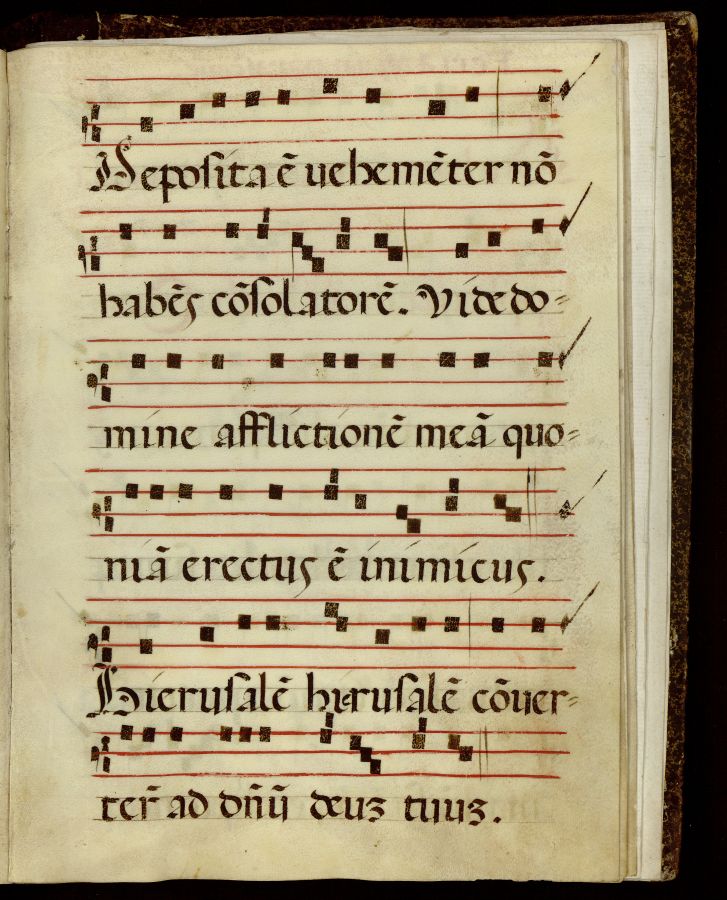 Deposita ē uehemēter nō
habēs cōsolatorē. Vide do=
mine afflictionē meā quo=
niā erectus ē inimicus.
Hierusalē hierusalē cōuer=
ter̃ ad dñū deuz tuuz.